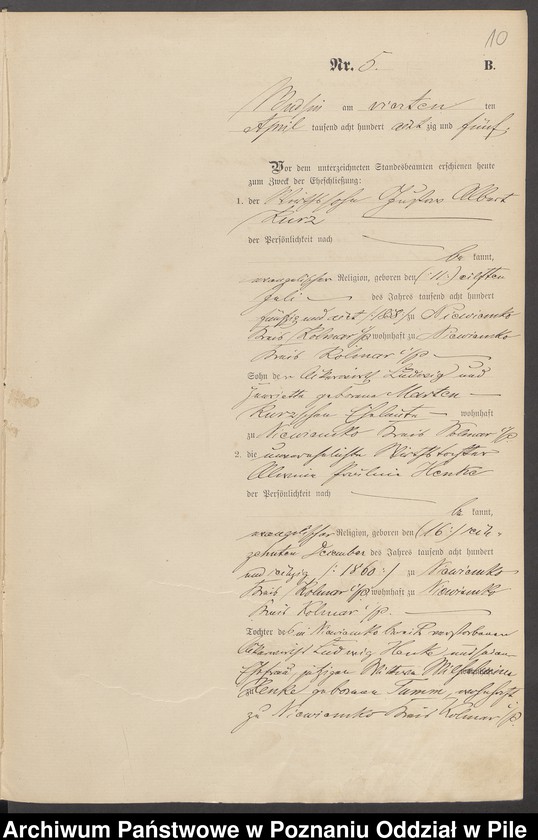 10
Nr. 5. B.
am vierten ten
April tausend acht hundert acht zig und fünf,
Vor dem unterzeichneten Standesbeamten erschienen heute
zum Zweck der Eheschließung:
1. der Wirthssohn Gustav Albert
Kurz
der Persönlichkeit nach
be kannt,
evangelischer Religion, geboren den (:11:) eilften
Juli des Jahres tausend acht hundert
fünfzig und acht zu
Kreis Kolmar i/p wohnhaft zu
Kreis Kolmar i/p
Sohn der Ludwig und
Henriette geborene Marten
Kurzschen Eheleute wohnhaft
zu Kreis Kolmar i/p
2. die unverehelichte Wirthstochter
Henke
der Persönlichkeit nach
be kannt,
evangelischer Religion, geboren den (16:) sech-
zehnten Dezember des Jahres tausend acht hundert
und sechzig /:1860:/ zu
Kreis Kolmar i/p wohnhaft zu
Kreis Kolmar i/p.
Tochter des in bereits verstorbenen
Ludwig Henke und dessen
Ehefrau, jetzigen Wittwe Wilhelmine
Henke geborenen Tamm, wohnhaft
zu Kreis Kolmar i/p.
Archiwum Państwowe w Poznaniu Oddział w Pile